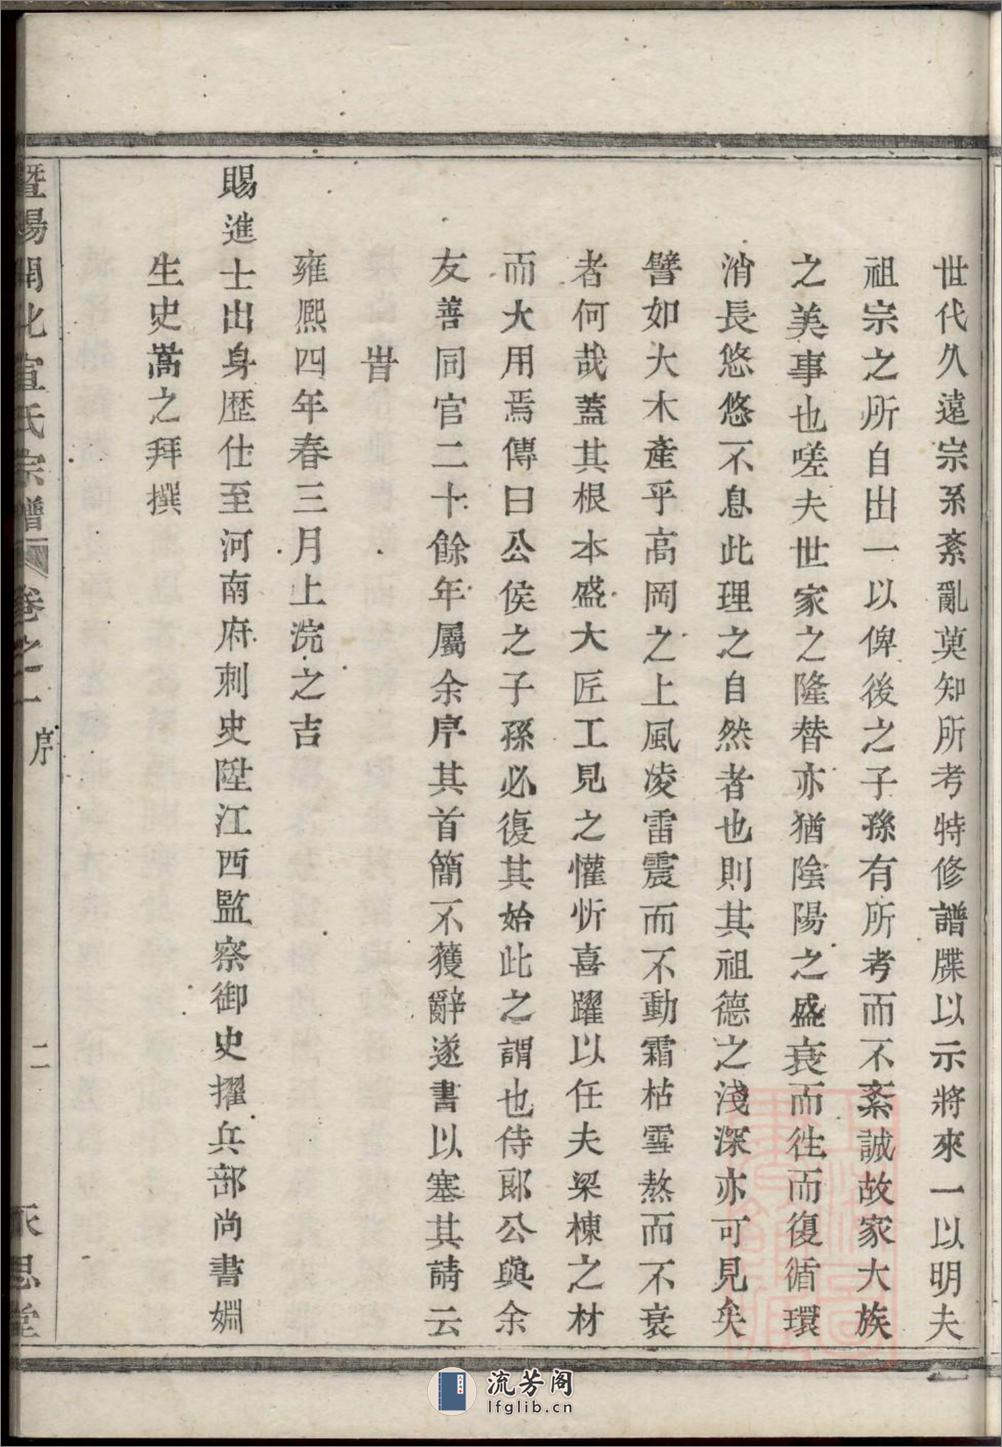 世代久遠宗系紊亂莫知所考特修譜牒以示將來一以明夫
祖宗之所自出一以俾後之子孫有所考而不紊誠故家大族
之美事也嗟夫世家之隆替亦猶陰陽之盛衰而往而復循環
消長悠悠不息此理之自然者也則其祖德之淺深亦可見矣
譬如大木產乎高岡之上風凌雷震而不動霜枯雪熬而不衰
者何哉蓋其根本盛大匠工見之懽忻喜躍以任夫梁棟之材
而大用焉傳曰公侯之子孫必復其始此之謂也侍郎公與余
友善同官二十餘年屬余序其首簡不獲辭遂書以塞其請云
旹
雍熙四年春三月上浣之吉
賜進士出身歷仕至河南府刺史陞江西監察御史擢兵部尚書婣
生史嵩之拜撰
暨陽開化宣氏宗譜 卷之一 序 二 永思堂
流芳阁
lfglib.cn